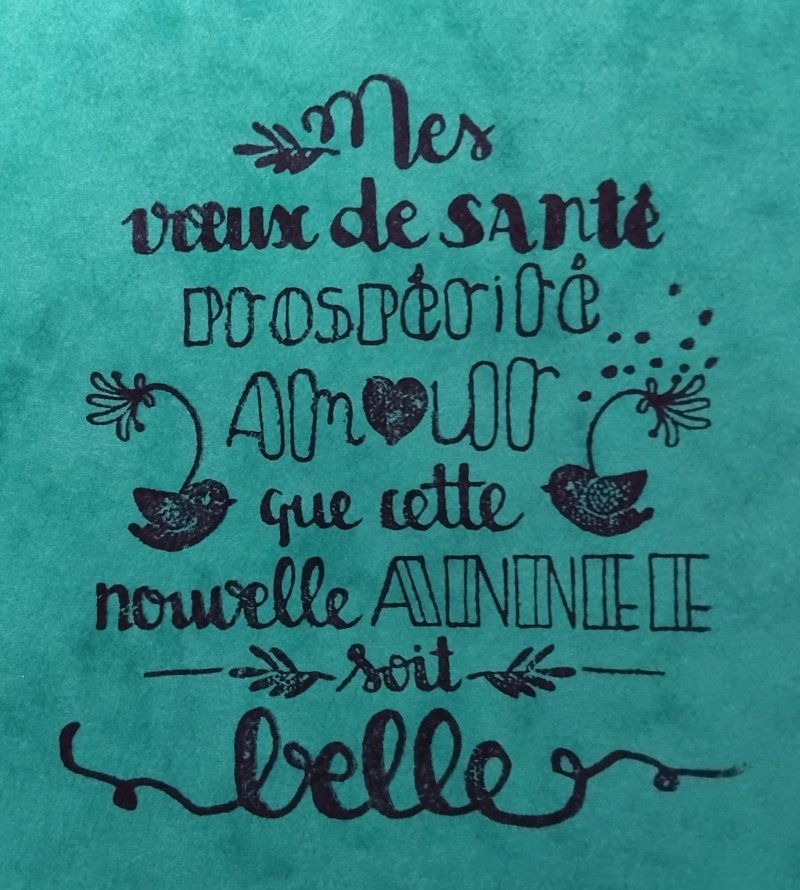 Mes
vœux de santé
prospérité
Amour
que cette
nouvelle ANNEE
soit
belle